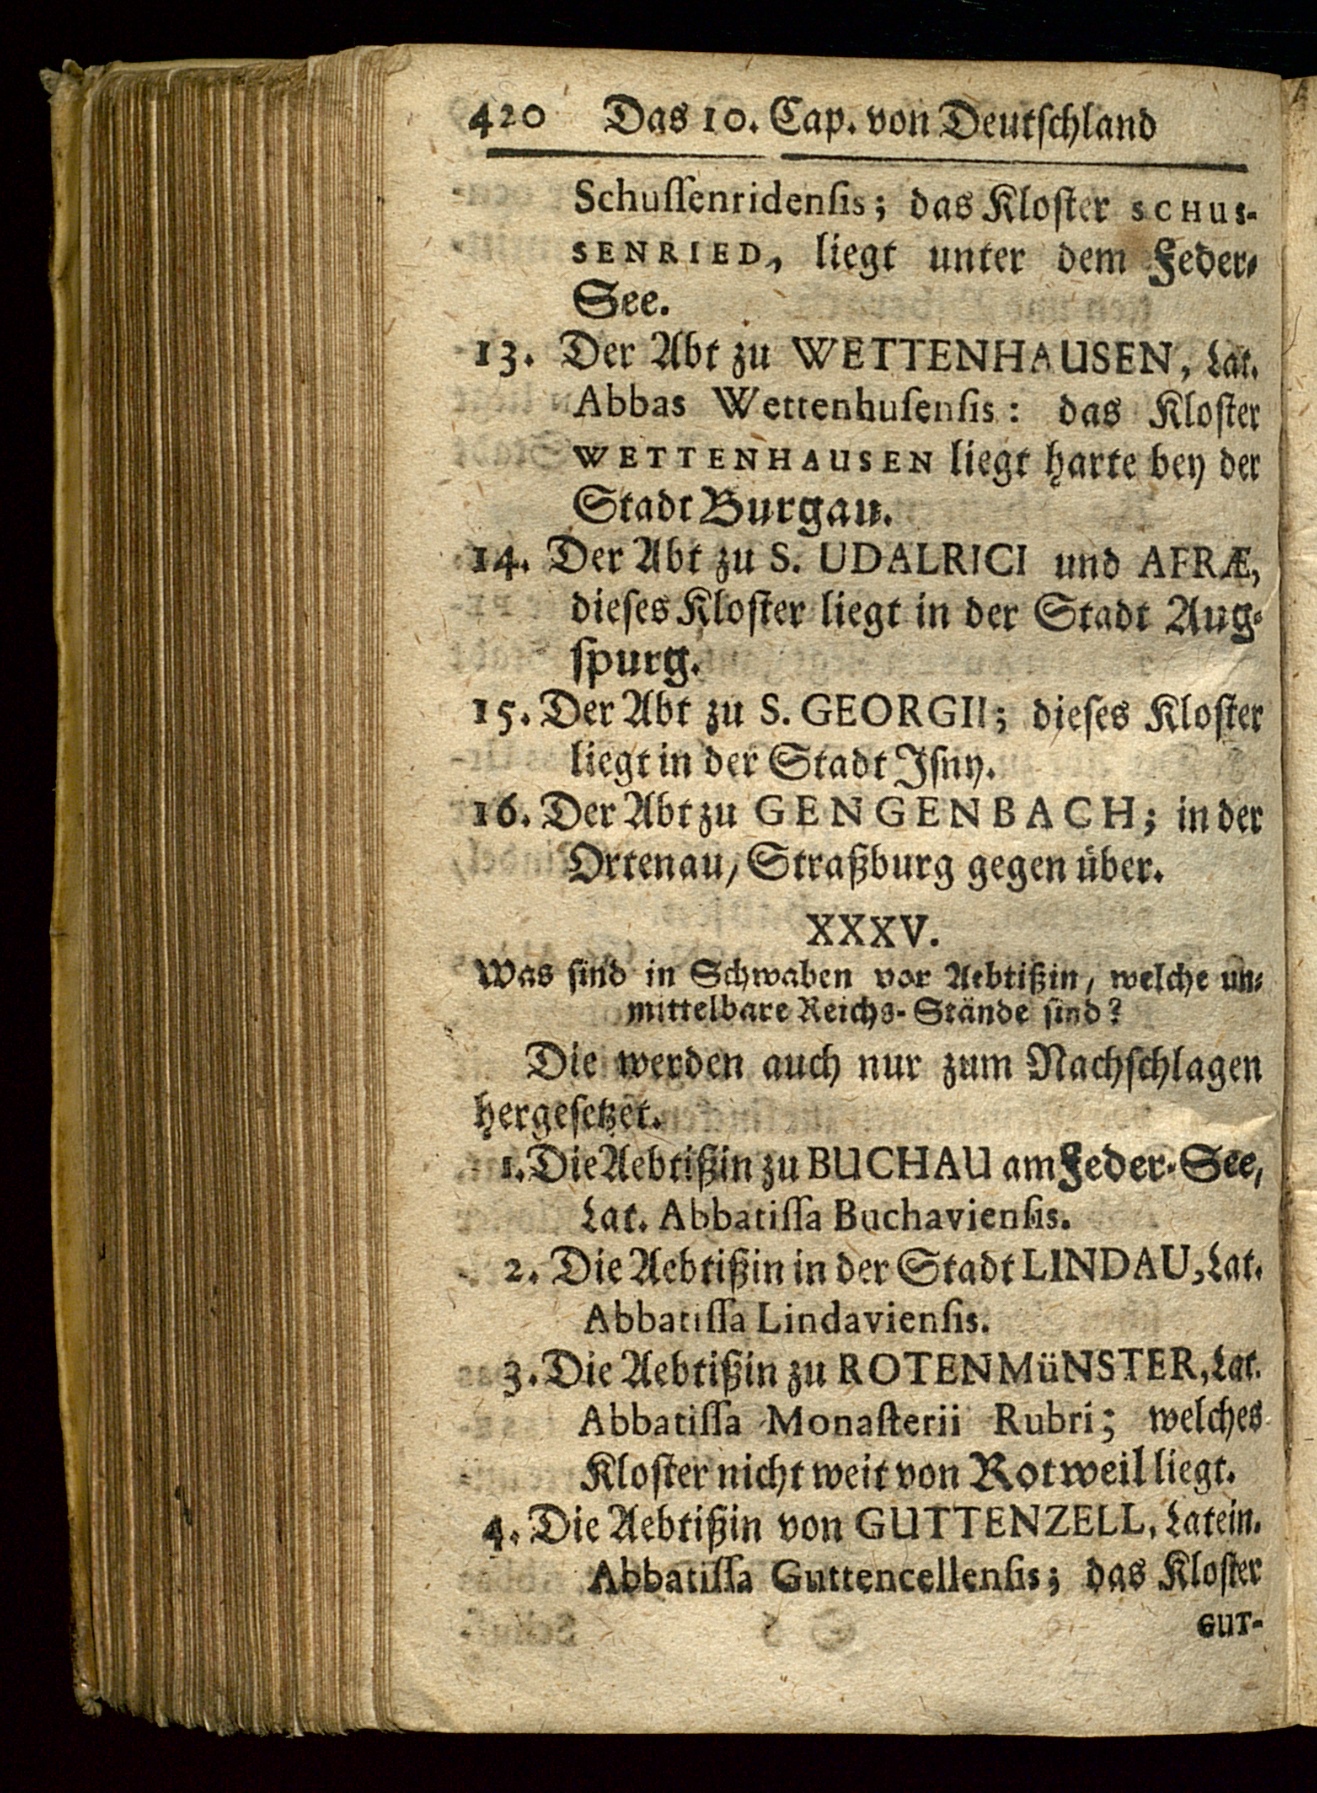 420 Das 10. Cap. von Deutschland
Schussenridensis; das Kloster SCHUS-
SENRIED, liegt unter dem Feder-
See.
13. Der Abt zu WETTENHAUSEN, Lat.
Abbas Wettenhusensis: das Kloster
WETTENHAUSEN liegt harte bey der
Stadt Burgau.
14. Der Abt zu S. UDALRICI und AFRÆ,
dieses Kloster liegt in der Stadt Aug-
spurg.
15. Der Abt zu S. GEORGII; dieses Kloster
liegt in der Stadt Isny.
16. Der Abt zu GENGENBACH; in der
Ortenau, Straßburg gegen über.
XXXV.
Was sind in Schwaben vor Aebtißin, welche un-
mittelbare Reichs-Stände sind?
Die werden auch nur zum Nachschlagen
hergesetzet.
1. Die Aebtißin zu BUCHAU am Feder-See,
Lat. Abbatissa Buchaviensis.
2. Die Aebtißin in der Stadt LINDAU, Lat.
Abbatissa Lindaviensis.
3. Die Aebtißin zu ROTENMüNSTER, Lat.
Abbatissa Monasterii Rubri; welches
Kloster nicht weit von Rotweil liegt.
4. Die Aebtißin von GUTTENZELL, Latein.
Abbatissa Guttencellensis; das Kloster
GUT-